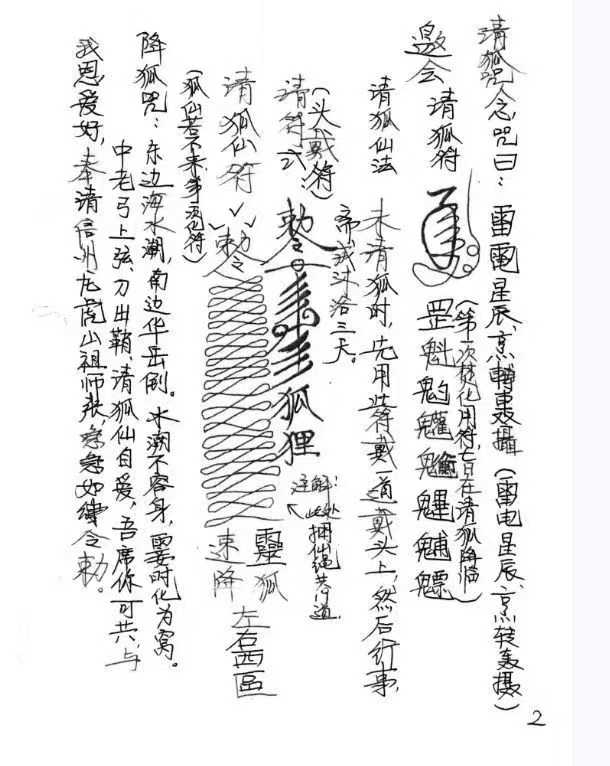 请狐咒人念,咒曰：雷電星辰、烹轉轰攝（雷电星辰、烹转轰摄）
（第一次焚化用符,七日在请狐降临）
邀会 请狐符
罡魁魁
请狐仙法 未请狐时,先用此符戴一道戴头上,然后行事,
斋戒沐浴三天。
（头戴符）
请符式：敕令 狐狸
注解：此处捆仙绳共 道
请狐仙符
敕令 靈狐速降 左右西區
（狐仙若不来多烧化符）
降狐咒：东边海水潮,南边华岳倒。水潮不容身,要时化为窝。
中老弓上弦,刀出鞘,请狐仙自爱,吾席你可共,与
我恩爱好,奉请信州龙虎山祖师张,急急如律令敕。
2